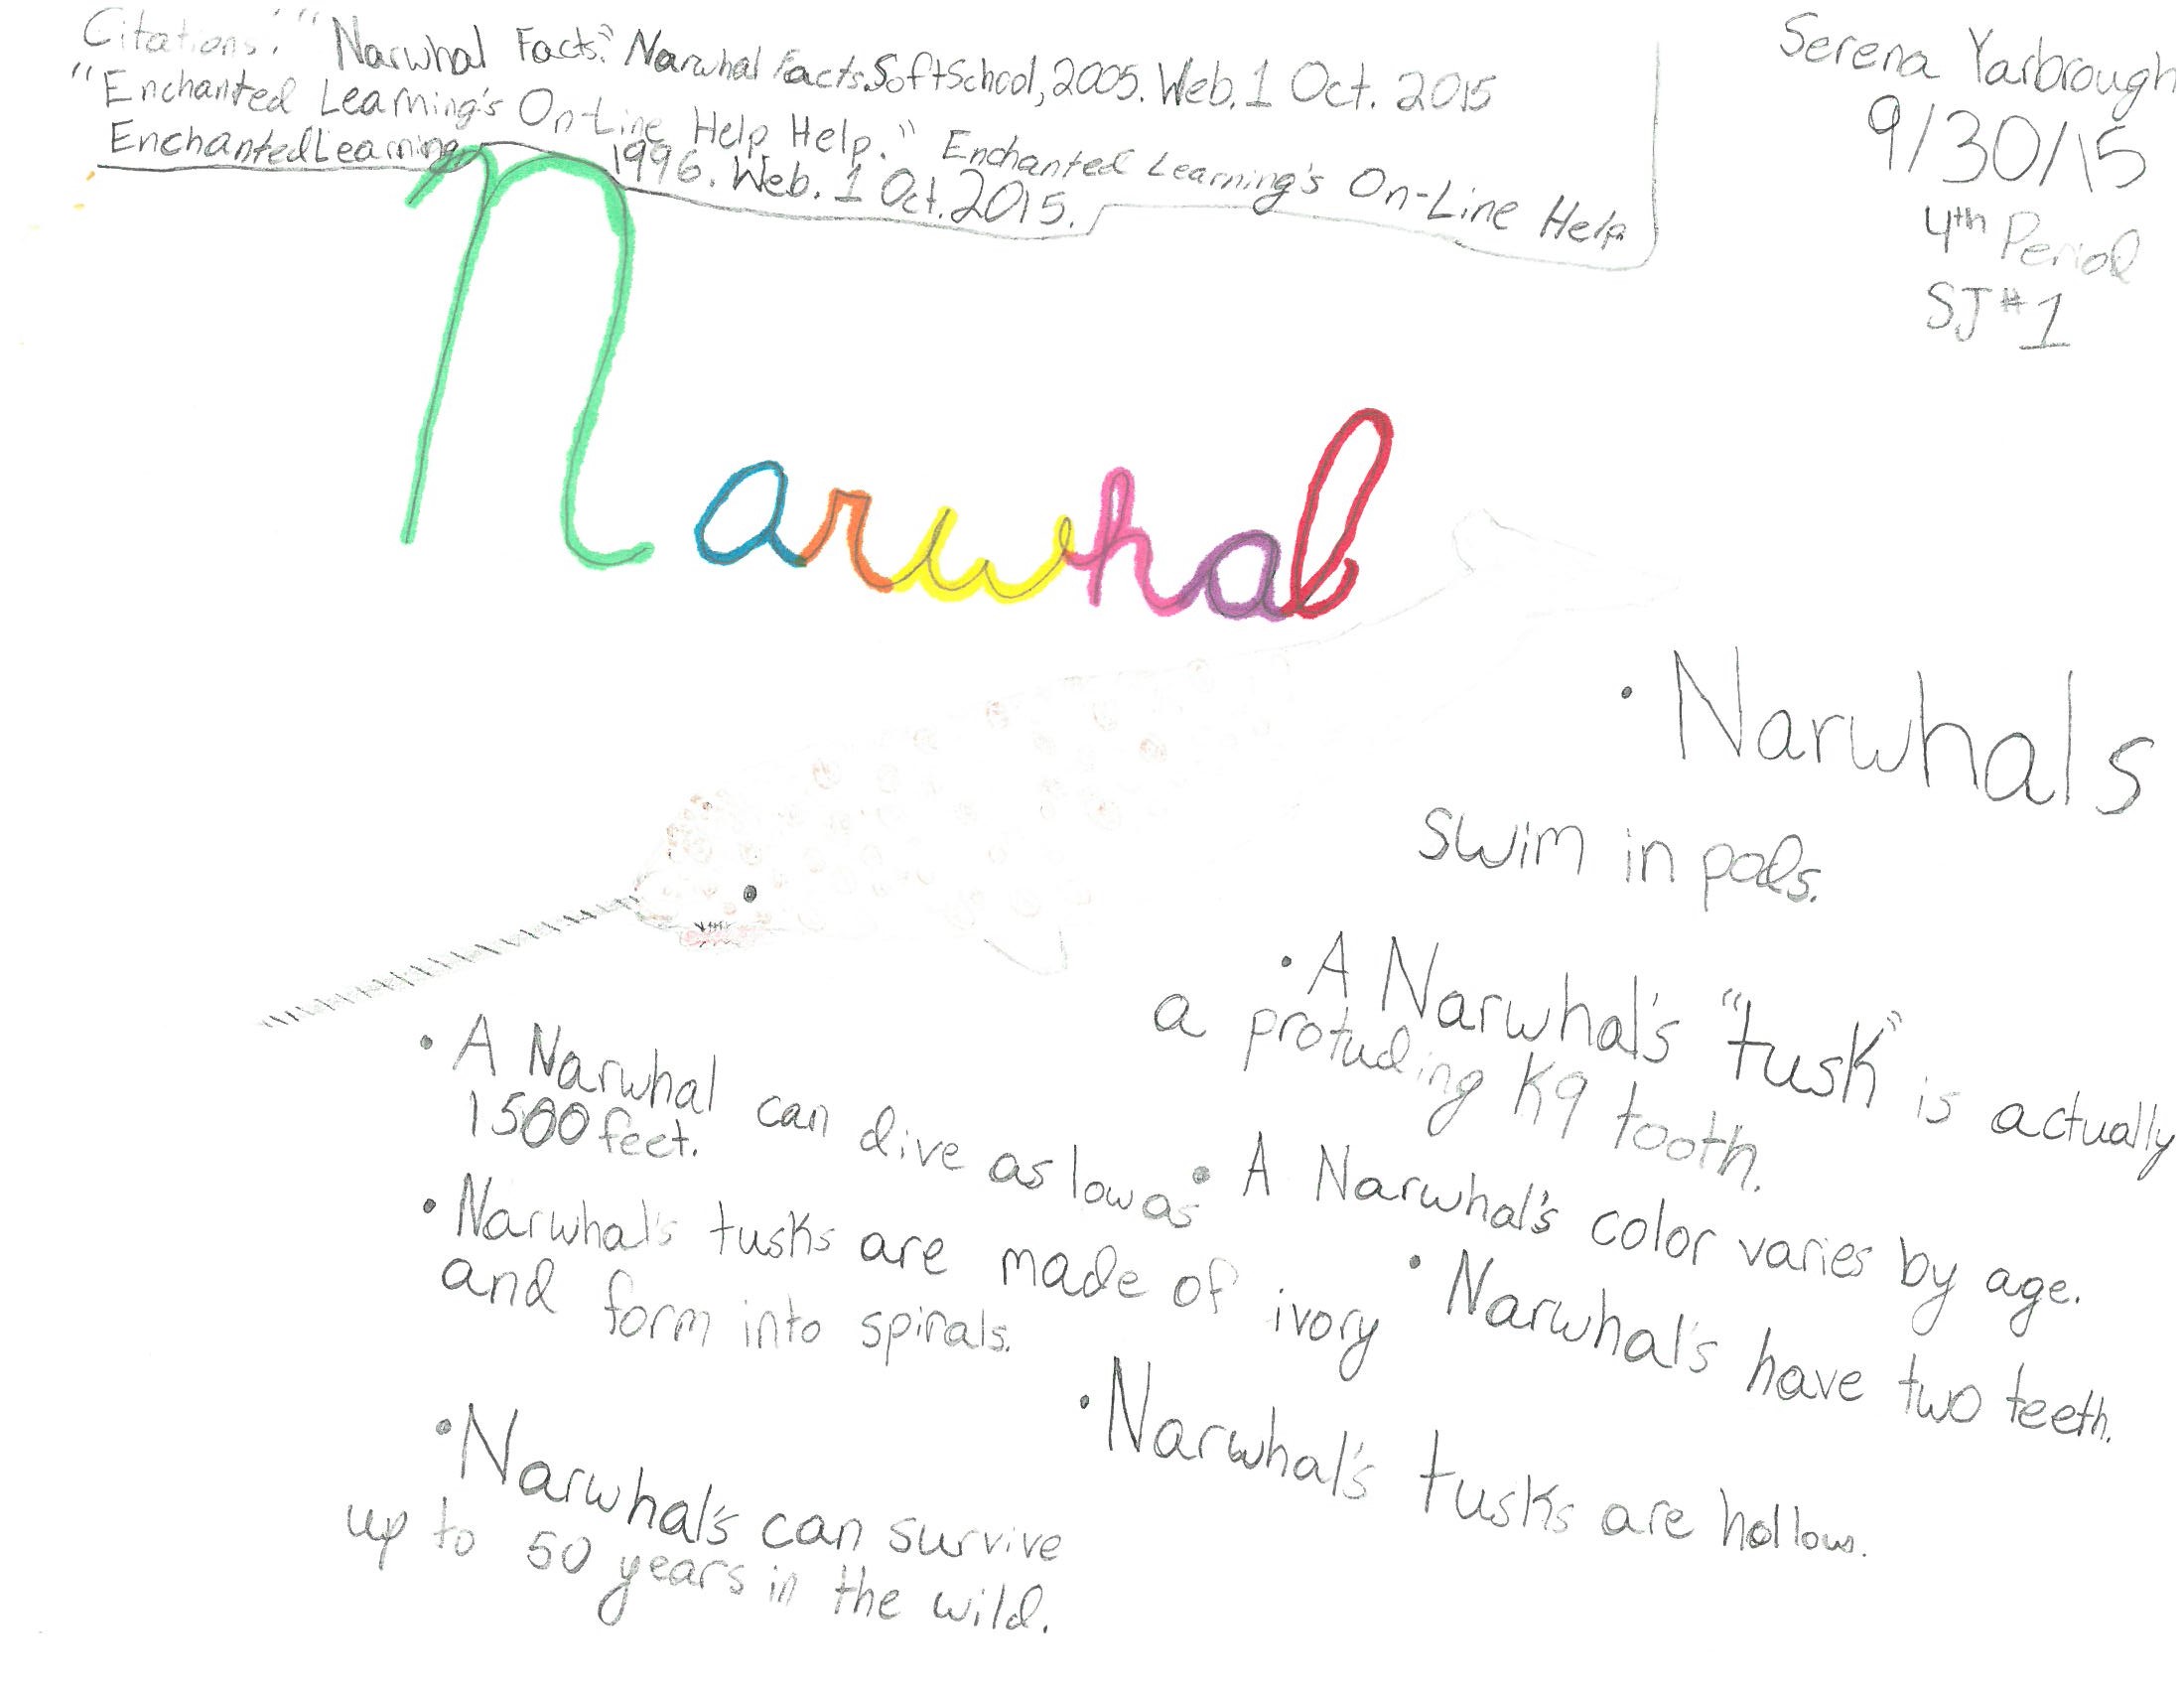 Citations: "Narwhal Facts." Narwhal Facts. SoftSchool, 2005. Web. 1 Oct. 2015
"Enchanted Learning's On-Line Help Help." Enchanted Learning's On-Line Help
EnchantedLearning, 1996. Web. 1 Oct. 2015.
Serena Yarbrough
9/30/15
4th Period
SJ #1
Narwhal
• Narwhals
swim in pods.
• A Narwhal's "tusk" is actually
a protuding K9 tooth.
• A Narwhal can dive as low as
1500 feet.
• A Narwhal's color varies by age.
• Narwhal's tusks are made of ivory
and form into spirals.
• Narwhal's have two teeth.
• Narwhal's tusks are hollow.
• Narwhal's can survive
up to 50 years in the wild.